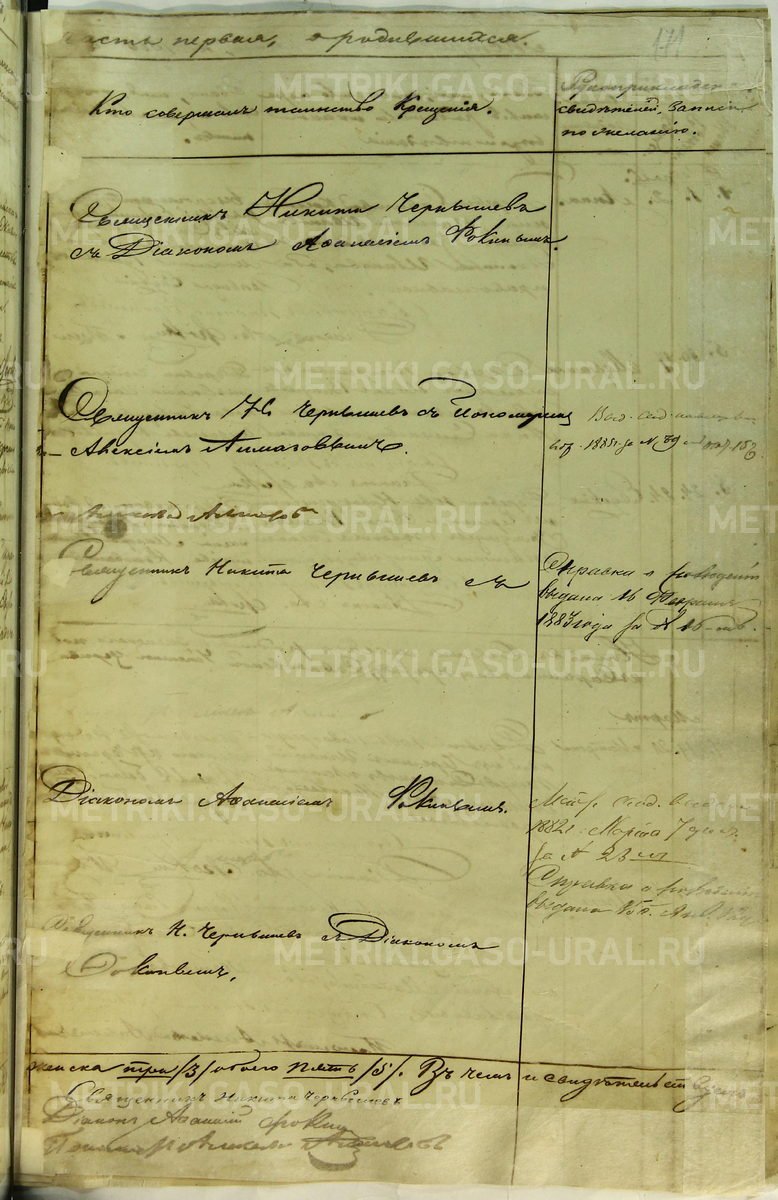 часть первая, о родившихся.
171
Кто совершалъ таинство Крещенія.
Рукоприкладст
свидѣтелей записи
по желанію.
Священникъ Никита Чернышевъ
съ Діакономъ Афанасіемъ Фокинымъ.
Священникъ Н. Чернышевъ съ Пономаремъ
Алексіемъ Алмазовымъ.
1885 г. за № 79
Священникъ Никита Чернышевъ съ
Справка о рожденіи
выдана 16 Февраля
1883 года за № 16-мъ.
Діакономъ Афанасіемъ Фокинымъ.
1882 г. Марта 7 дня
за № 23 мъ
Справка о рожденіи
выдана
Священникъ Н. Чернышевъ съ Діакономъ
Фокинымъ.
женска три /3/ обоего пять /5/. Въ чемъ и свидѣтельствуемъ
Священникъ Никита Чернышевъ
Діаконъ Афанасій Фокинъ
METRIKI.GASO-URAL.RU